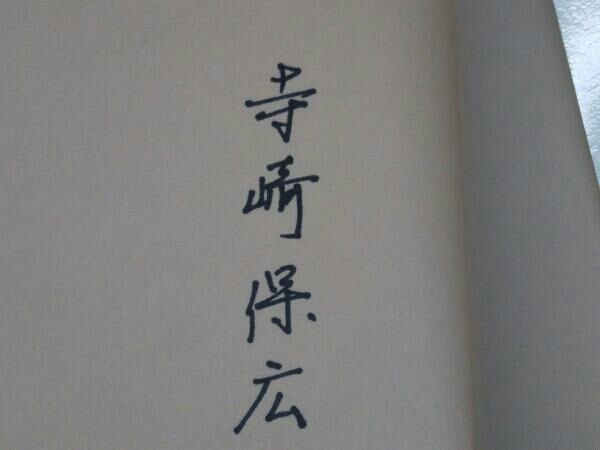 寺崎保広